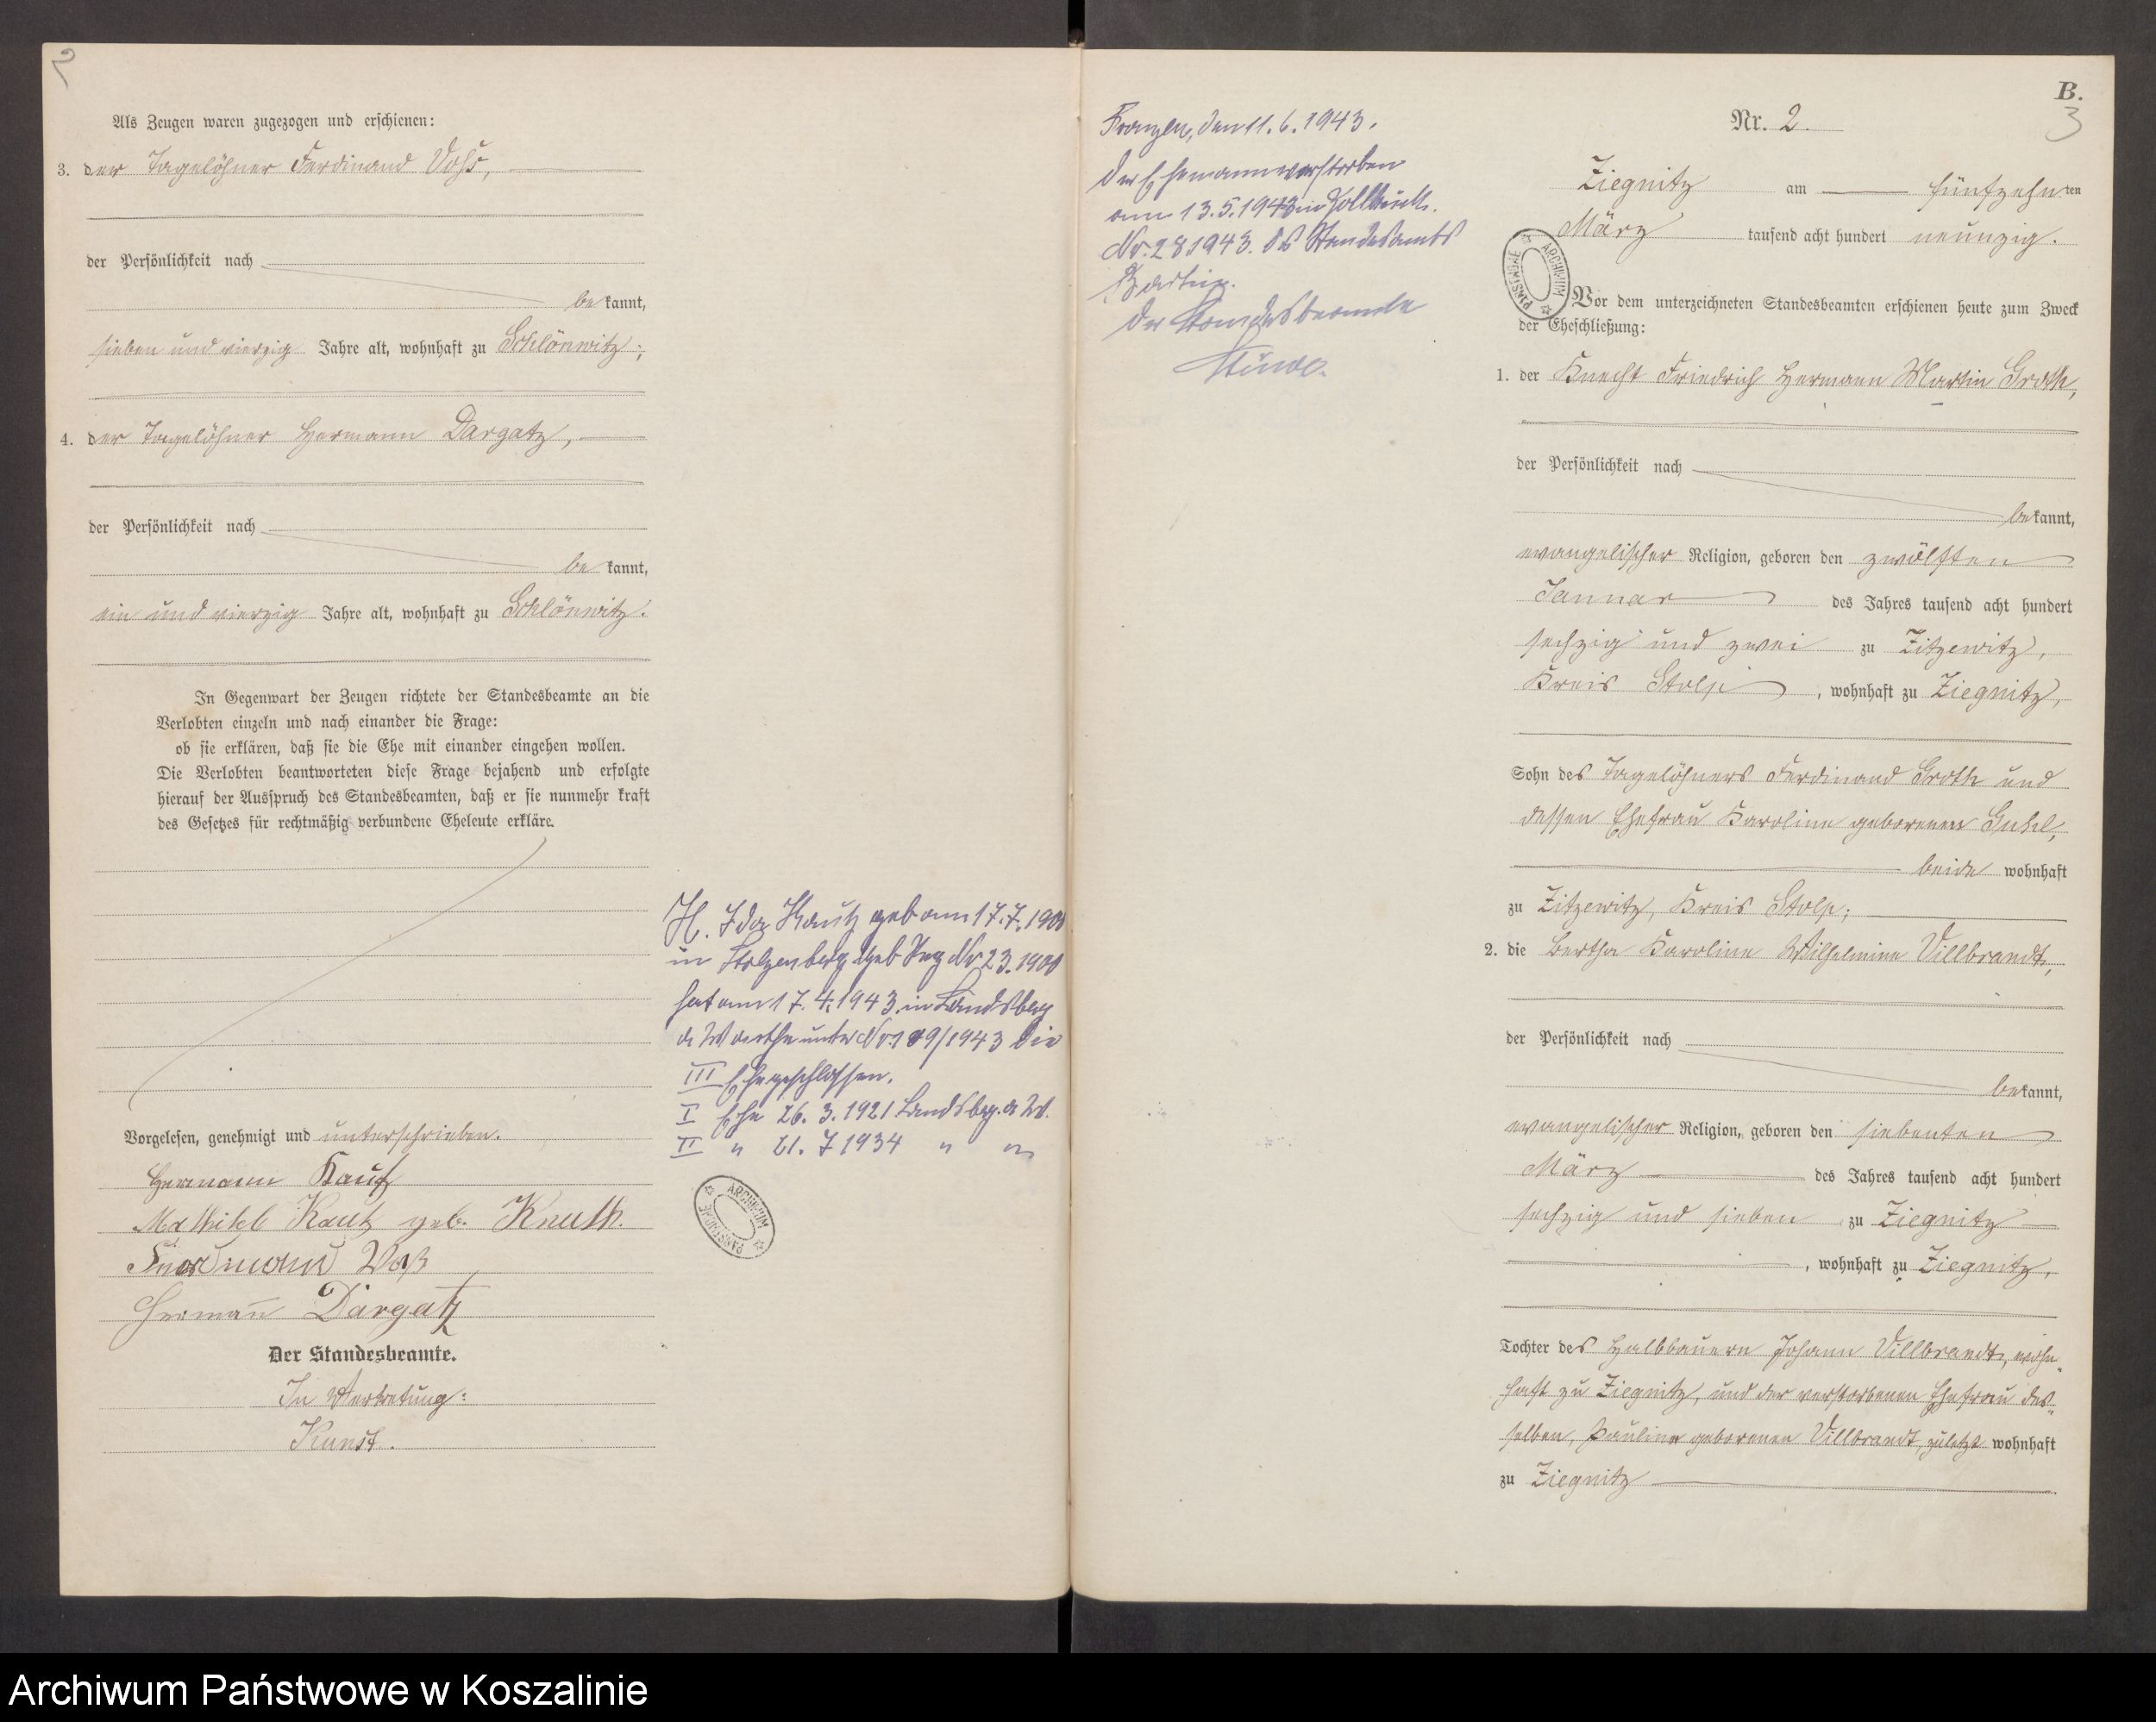 2
Als Zeugen waren zugezogen und erschienen:
3. der Tagelöhner Ferdinand Vohs,
der Persönlichkeit nach
be kannt,
sieben und vierzig Jahre alt, wohnhaft zu Schlönwitz;
4. der Tagelöhner Hermann Dargatz,
der Persönlichkeit nach
be kannt,
ein und vierzig Jahre alt, wohnhaft zu Schlönwitz.
In Gegenwart der Zeugen richtete der Standesbeamte an die
Verlobten einzeln und nach einander die Frage:
ob sie erklären, daß sie die Ehe mit einander eingehen wollen.
Die Verlobten beantworteten diese Frage bejahend und erfolgte
hierauf der Ausspruch des Standesbeamten, daß er sie nunmehr kraft
des Gesetzes für rechtmäßig verbundene Eheleute erkläre.
Vorgelesen, genehmigt und unterschrieben.
Hermann Kautz
Mathild Kautz geb. Knuth.
Ferdinand Voß
Herman̄ Dargatz
Der Standesbeamte.
In Vertretung:
Kunst.
Ida Kautz geb am 17.7.1900
in Stolzenberg Geb Reg Nr 23.1900
hat am 17.4.1943 in Landsberg
a Warthe unter Nr. 109/1943 die
III Ehe geschlossen.
I Ehe 26.3.1921 Landsbg. a W.
II " 21.7 1934 " "
ARCHIWUM PAŃSTWOWE
B.
3
Franzen, den 11.6.1943.
Der Ehemann verstorben
am 13.5.1943 in Zollbrück.
Nr. 28 1943. des Standesamts
Bartin.
Der Standesbeamte
Nr. 2.
Ziegnitz am fünfzehn ten
März tausend acht hundert neunzig.
ARCHIWUM PAŃSTWOWE
Vor dem unterzeichneten Standesbeamten erschienen heute zum Zweck
der Eheschließung:
1. der Knecht Friedrich Hermann Martin Groth,
der Persönlichkeit nach
be kannt,
evangelischer Religion, geboren den zwölften
Januar des Jahres tausend acht hundert
sechzig und zwei zu Zitzewitz,
Kreis Stolp, wohnhaft zu Ziegnitz,
Sohn des Tagelöhners Ferdinand Groth und
dessen Ehefrau Karoline geborenen Guhl,
beide wohnhaft
zu Zitzewitz, Kreis Stolp;
2. die Bertha Karoline Wilhelmine Villbrandt,
der Persönlichkeit nach
be kannt,
evangelischer Religion, geboren den siebenten
März des Jahres tausend acht hundert
sechzig und sieben zu Ziegnitz
, wohnhaft zu Ziegnitz,
Tochter des Halbbauern Johann Villbrandt, wohn-
haft zu Ziegnitz, und der verstorbenen Ehefrau des-
selben, Pauline geborenen Villbrandt, zuletzt wohnhaft
zu Ziegnitz
Archiwum Państwowe w Koszalinie